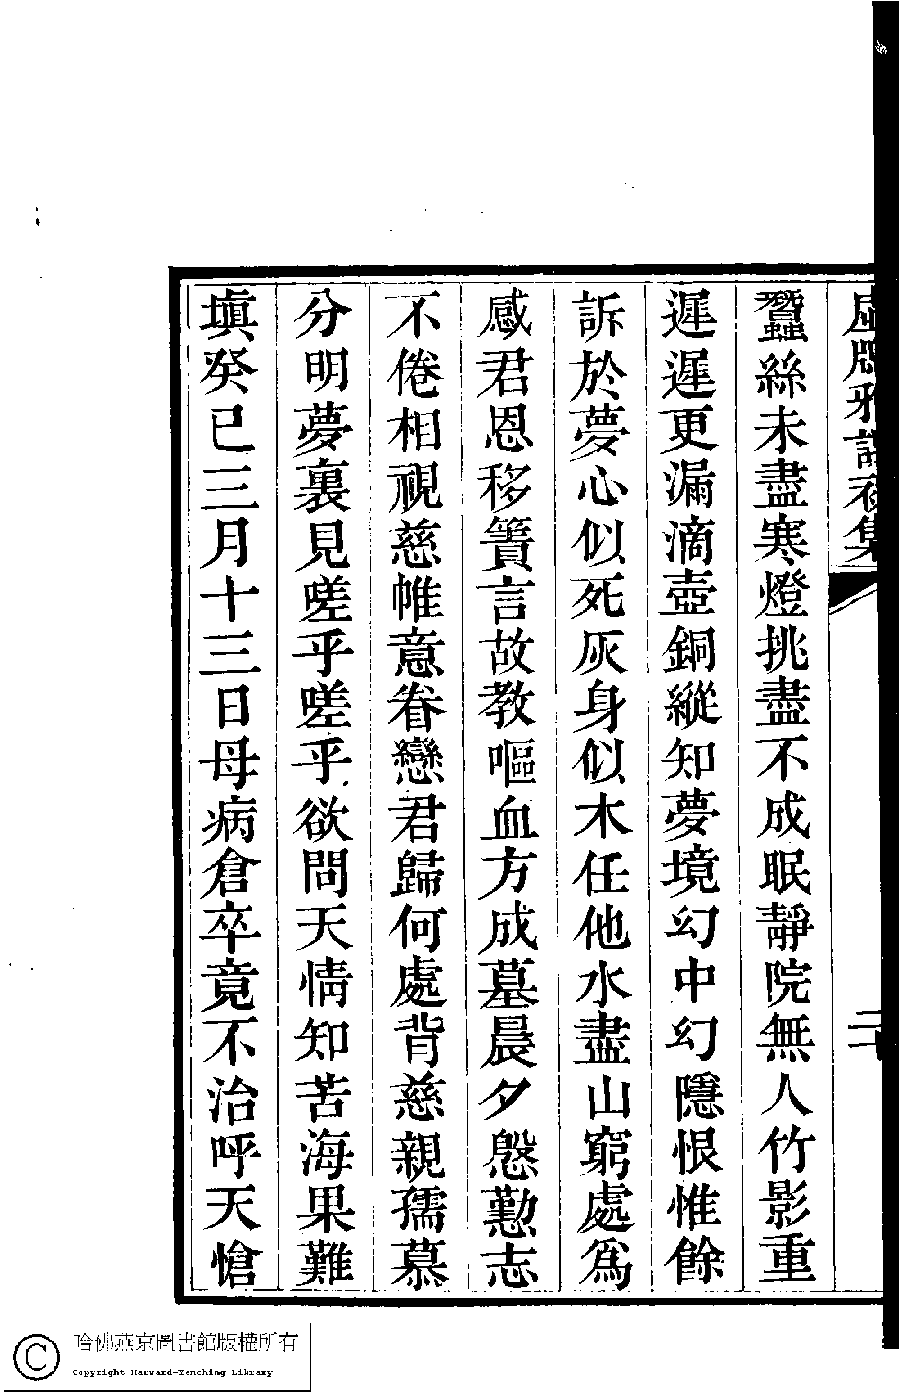 虛牕雅課初集
二十
蠶絲未盡寒燈挑盡不成眠靜院無人竹影重
遲遲更漏滴壺銅縱知夢境幻中幻隱恨惟餘
訴於夢心似死灰身似木任他水盡山窮處爲
感君恩移簀言故教嘔血方成墓晨夕慇懃志
不倦相視慈帷意眷戀君歸何處背慈親孺慕
分明夢裏見嗟乎嗟乎欲問天情知苦海果難
填癸巳三月十三日母病倉卒竟不治呼天愴
哈佛燕京圖書館版權所有
Copyright Harvard-Yenching Library